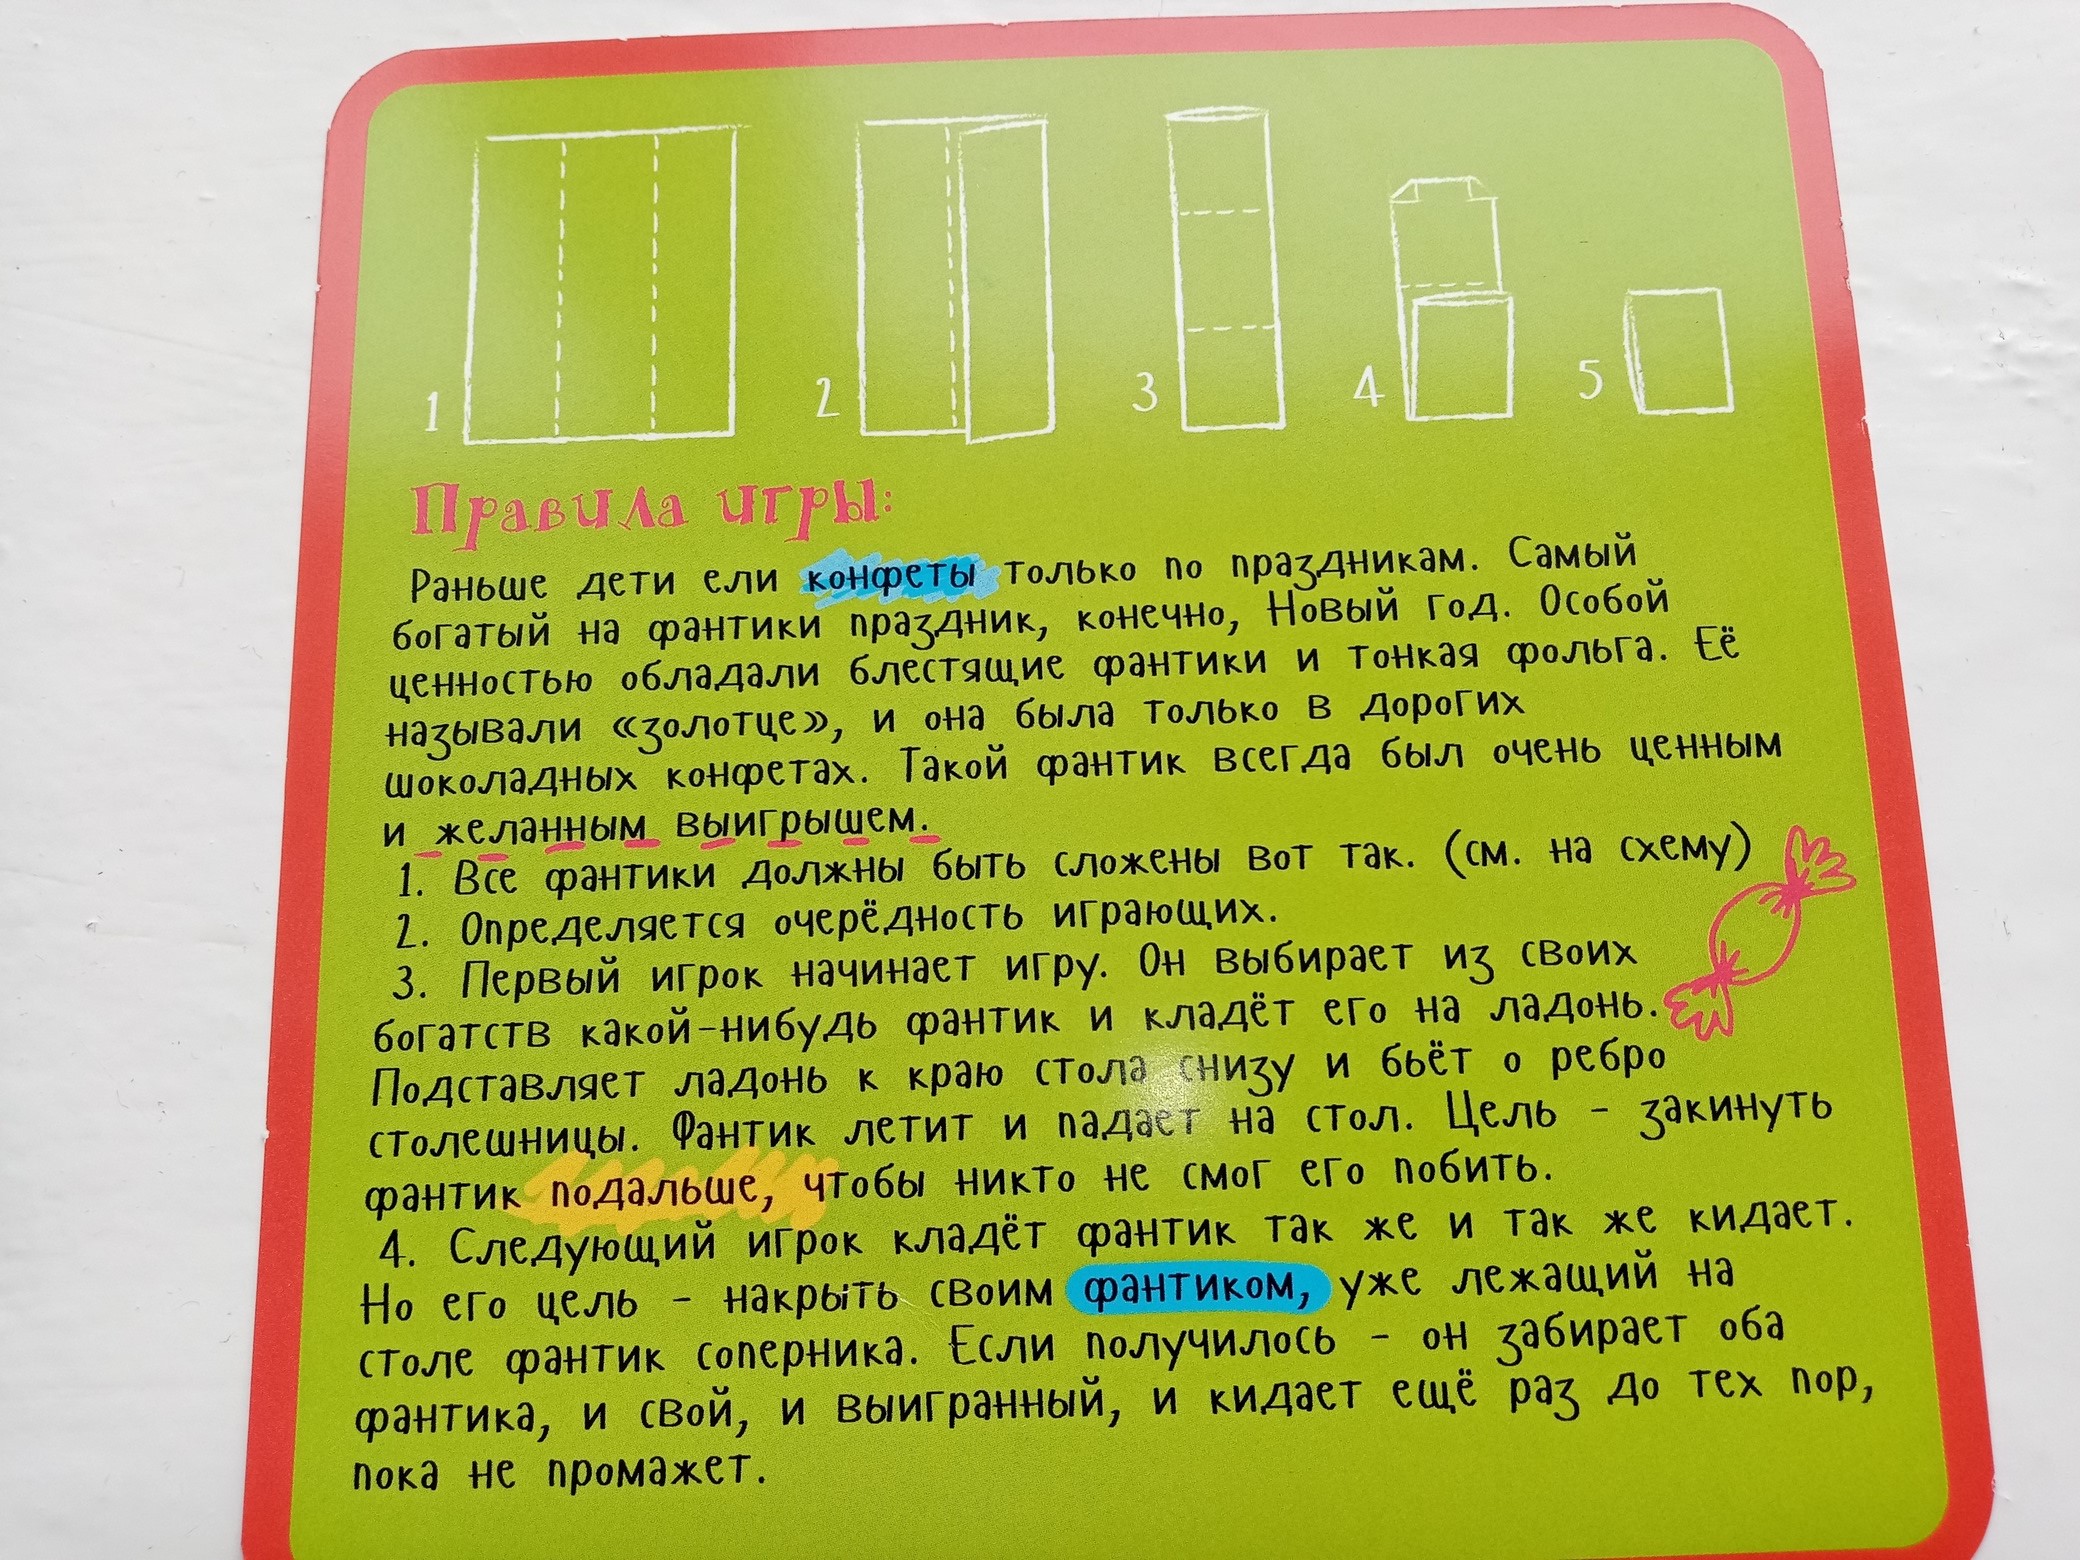 1 2 3 4 5
Правила игры:
Раньше дети ели конфеты только по праздникам. Самый
богатый на фантики праздник, конечно, Новый год. Особой
ценностью обладали блестящие фантики и тонкая фольга. Её
называли «золотце», и она была только в дорогих
шоколадных конфетах. Такой фантик всегда был очень ценным
и желанным выигрышем.
1. Все фантики должны быть сложены вот так. (см. на схему)
2. Определяется очерёдность играющих.
3. Первый игрок начинает игру. Он выбирает из своих
богатств какой-нибудь фантик и кладёт его на ладонь.
Подставляет ладонь к краю стола снизу и бьёт о ребро
столешницы. Фантик летит и падает на стол. Цель - закинуть
фантик подальше, чтобы никто не смог его побить.
4. Следующий игрок кладёт фантик так же и так же кидает.
Но его цель - накрыть своим фантиком, уже лежащий на
столе фантик соперника. Если получилось - он забирает оба
фантика, и свой, и выигранный, и кидает ещё раз до тех пор,
пока не промажет.